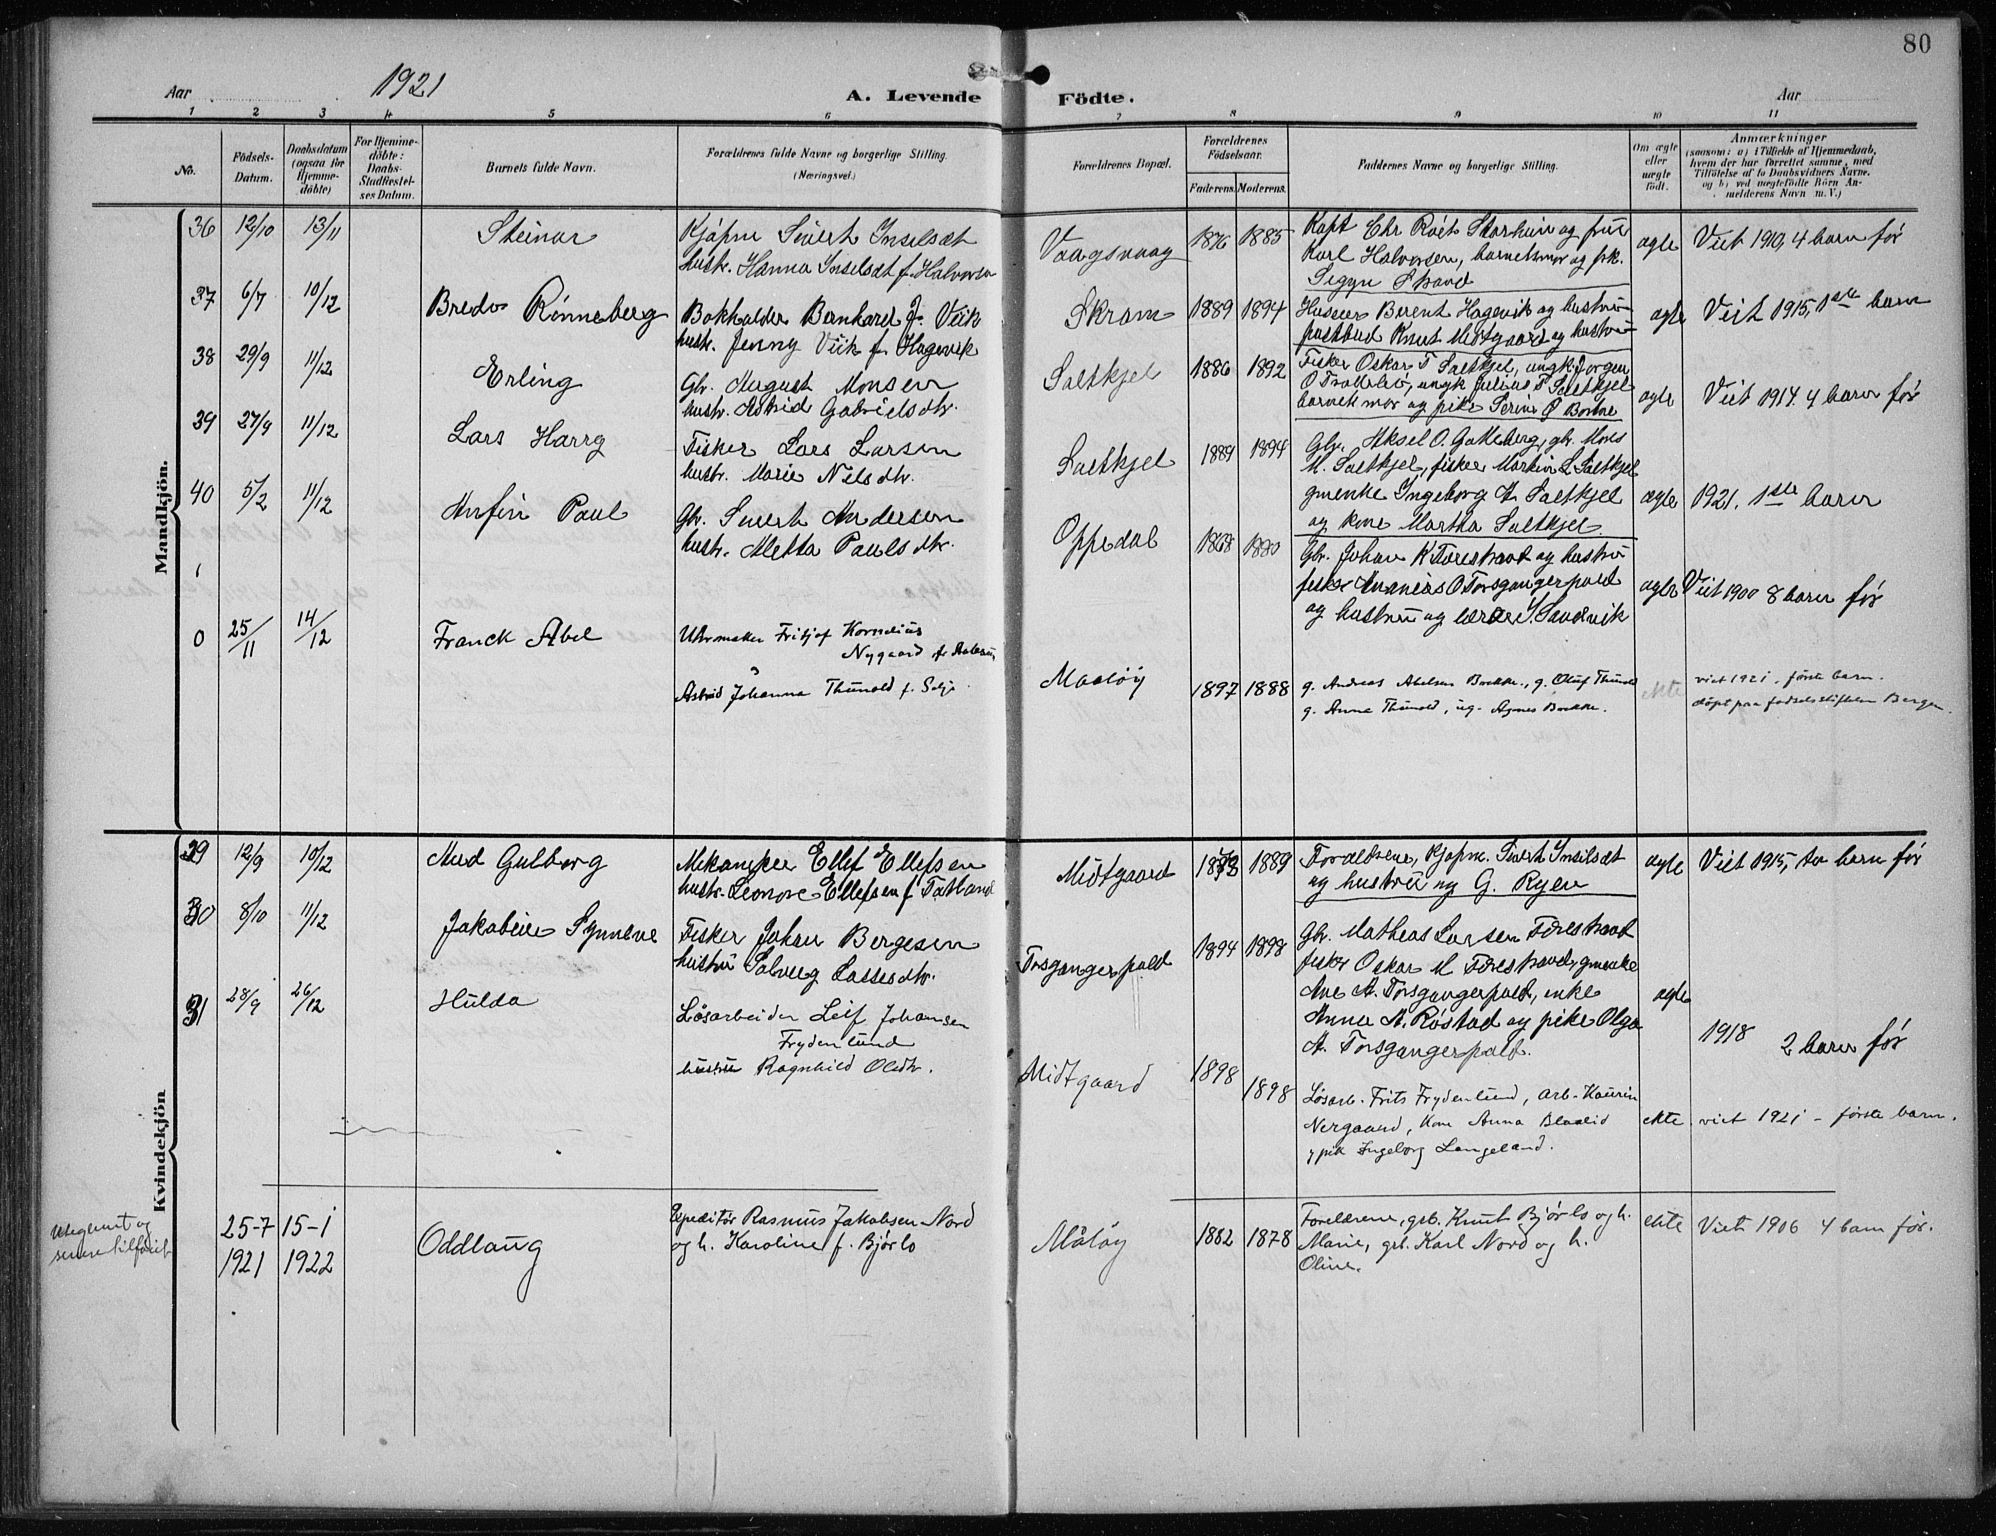 80
Aar 1921
A. Levende Födte.
Aar
1 2 3 4 5 6 7 8 9 10 11
No.
Födsels-Datum.
Daabsdatum (ogsaa for Hjemme-döbte)
For Hjemme-döbte: Daabs-Stadfæstel-ses Datum.
Barnets fulde Navn.
Forældrenes fulde Navne og borgerlige Stilling.
(Næringsvei.)
Forældrenes Bopæl.
Forældrenes Födselsaar.
Faderens. Moderens.
Faddernes Navne og borgerlige Stilling.
Om ægte eller uægte födt.
Anmærkninger
(saasom: a) i Tilfælde af Hjemmedaab,
hvem der har forrettet samme, med
Tilföielse af to Daabsvidners Navne.
og b) ved uægtefödte Börn An-
melderens Navn m. V.)
Mandkjön.
36 12/10 13/11 Steinar
Kjøpm Sivert Inselsæt
hustr. Hanna Inselsæt f. Halvorsen
Vaagsvaag 1876 1885
Kapt Chr Røst Storheim og frue
Karl Halvorsen, barnets mor og frk.
Sigyn Strand
ægte Viet 1910, 4 barn før
37 6/7 10/12 Bredo Rønneberg
Bokholder Bernhard J. Viik
hustr. Jenny Viik f. Hagevik
Skram 1889 1894
Huseier Berent Hagevik og hustru
postbud Knut Midtgaard og hustru
ægte Viet 1915, 1ste barn
38 29/9 11/12 Erling
Gbr. August Monsen
hustr. Astrid Gabrielsdtr.
Saltkjel 1886 1892
Fisker Oskar T Saltkjel, ungk. Jørgen
O Trollebø, ungk Julius T Saltkjel
barnets mor og pike Serine O Bortne
ægte Viet 1914. 4 barn før
39 27/9 11/12 Lars Harry
Fisker Lars Larsen
hustr. Marie Nilsdtr.
Saltkjel 1889 1894
Gbr. Aksel O. Gotteberg, gbr. Mons
M. Saltkjel, fisker Martin L Saltkjel
gmenke Ingeborg A. Saltkjel
og kone Martha Saltkjel.
ægte 1921. 1ste barn
40 5/2 11/12 Anfin Paul
Gbr. Sivert Andersen
hustr. Aletta Paulsdtr.
Oppedal 1868 1880
Gbr. Johan K Færestrand og hustru
fisker Ananias O Torsgangerpold
og hustru og lærer S. Sandvik
ægte Viet 1900 8 barn før
0 25/11 14/12 Franck Abel
Uhrmaker Fritjof Kornelius
Nygaard fr Aalesun
Astrid Johanna Thunold f. Selje
Maaløy 1897 1888
g. Andreas Abelsen Brekke, g. Oluf Thunold
g. Anna Thunold, ug. Agnes Brekke.
ekte viet 1921. første barn.
døpt paa fødselsstiftelsen Bergen.
Kvindekjön
29 12/9 10/12 Aud Gulborg
Mekaniker Ellef Ellefsen
hustr. Leonore Ellefsen f Tatland
Midtgaard 1889
Forældrene, Kjøpm. Sivert Inselsæt
og hustru og G. Ryen
ægte Viet 1915, to barn før
30 8/10 11/12 Jakobine Synneve
Fisker Johan Bergesen
hustru Solveig Lassesdtr.
Torsgangerpold 1894 1898
Gbr. Mathias Larsen Færestrand
fisker Oskar M Færestrand, gmenke
Ane A. Torsgangerpold, enke
Anna A. Røstad og pike Olga
A. Torsgangerpold.
ægte 1918 2 barn før
31 28/9 26/12 Hulda
Løsarbeider Leif Johansen
Frydenlund
hustru Ragnhild Olsdtr.
Midtgaard 1898 1898
Løsarb. Frits Frydenlund, Arb. Kaurin
Nergaard, Kone Anna Blaalid
, pik Ingeborg Langeland.
ekte viet 1921 – første barn.
Uteglemt og
senere tilføiet
25-7 1921 15-1 1922 Oddlaug
Expeditør Rasmus Jakobsen Nord
og h. Karoline f. Bjørlo
Måløy 1882 1878
Foreldrene, grb. Knut Bjørlo og h.
Marie, grb. Karl Nord og h.
Oline.
ekte Viet 1906 4 barn før.